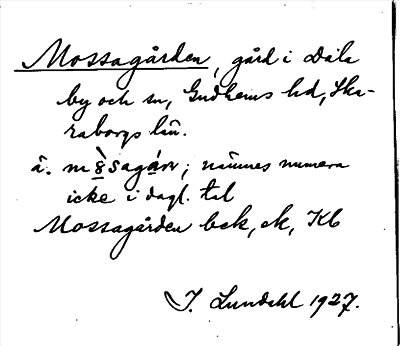 Mossagården, gård i Dala
by och sn, Gudhems hd, Ska-
raborgs län.
å. m8̀sagán; nämnes numera
icke i dagl. tal
Mossagården bek, ck, Kb
I. Lundahl 1927.